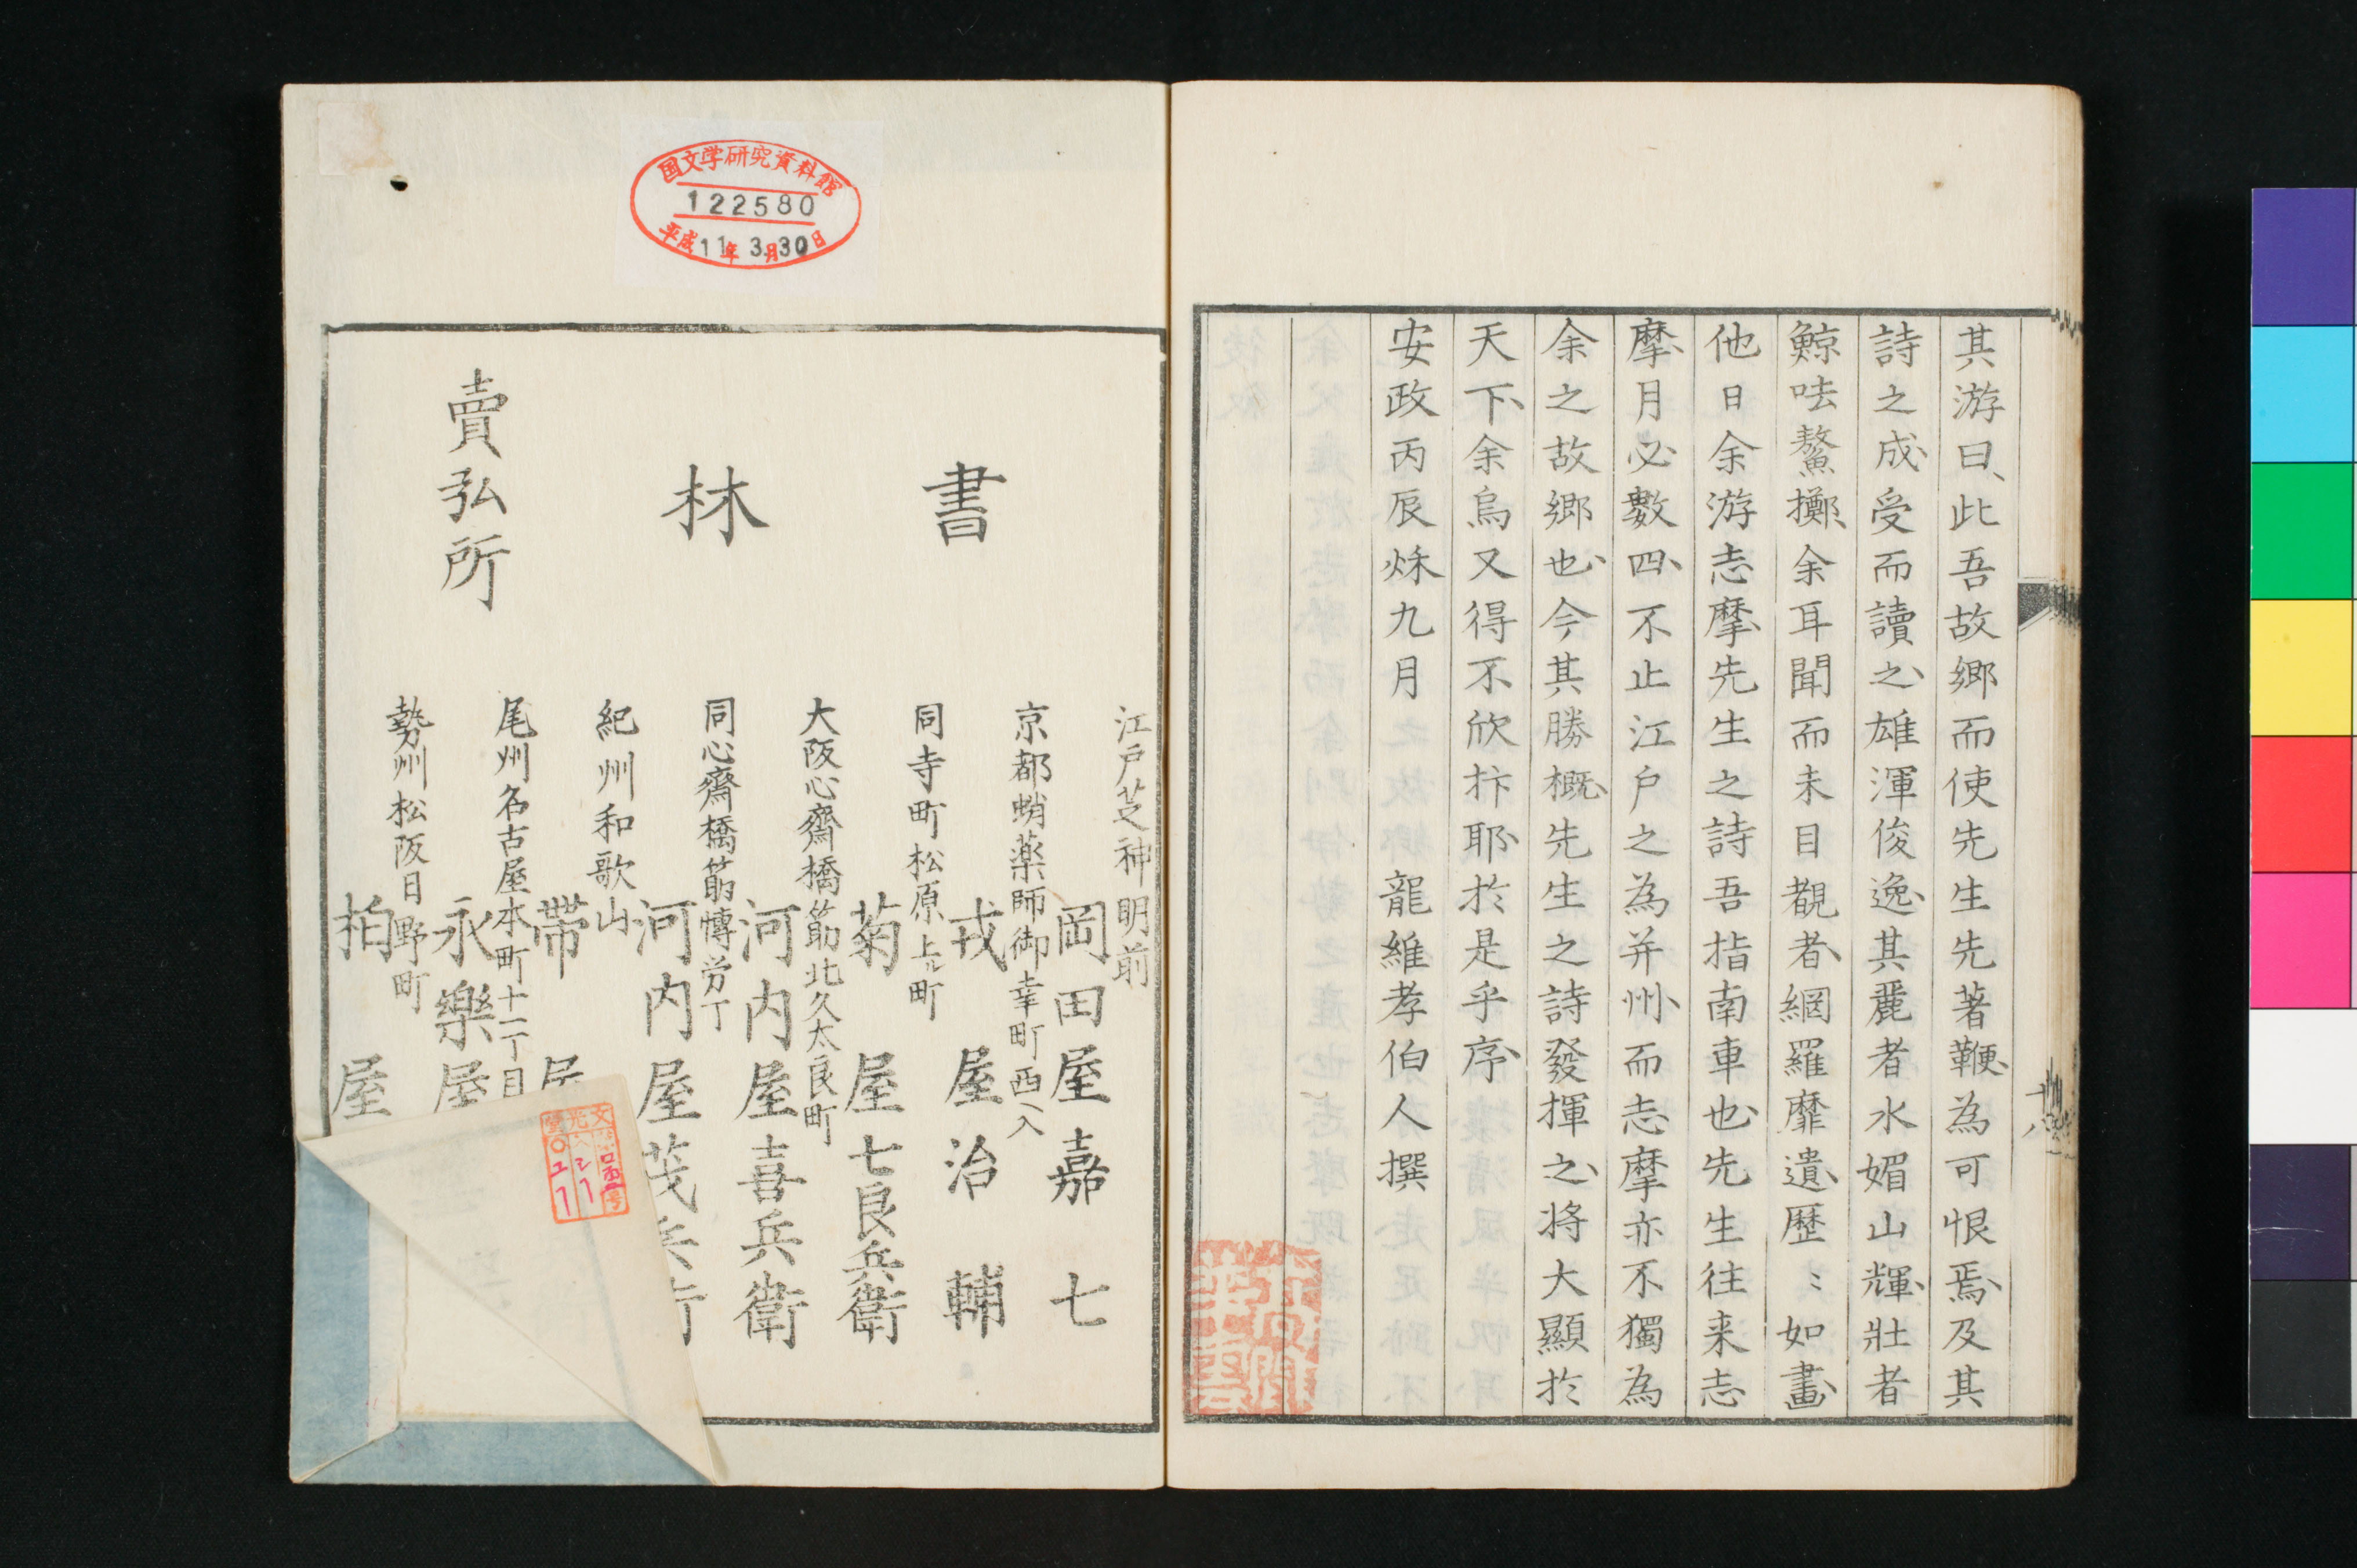 其游曰、此吾故郷而使先生先著鞭、為可恨焉、及其
詩之成、受而讀之、雄渾俊逸、其麗者水媚山輝、壯者
鯨呿鰲擲、余耳聞而未目覩者、網羅靡遺、歴〻如畫、
他日余游志摩、先生之詩吾指南車也、先生往来志
摩、月必數四、不止江戸之為并州、而志摩亦不獨為
余之故郷也、今其勝概、先生之詩發揮之、将大顯於
天下、余烏又得不欣抃耶、於是乎序、
安政丙辰烁九月 龍維孝伯人撰
十八
国文学研究資料館
122580
平成11年3月30日
書林
江戸芝神明前
岡田屋嘉七
京都蛸薬師御幸町西ヘ入
戎屋治輔
同寺町松原上ル町
菊屋七良兵衛
大阪心齋橋筋北久太良町
河内屋喜兵衛
同心齋橋筋博労丁
河内屋茂兵衛
紀州和歌山
帯屋
尾州名古屋本町十一丁目
永樂屋
勢州松阪日野町
柏屋
賣弘所